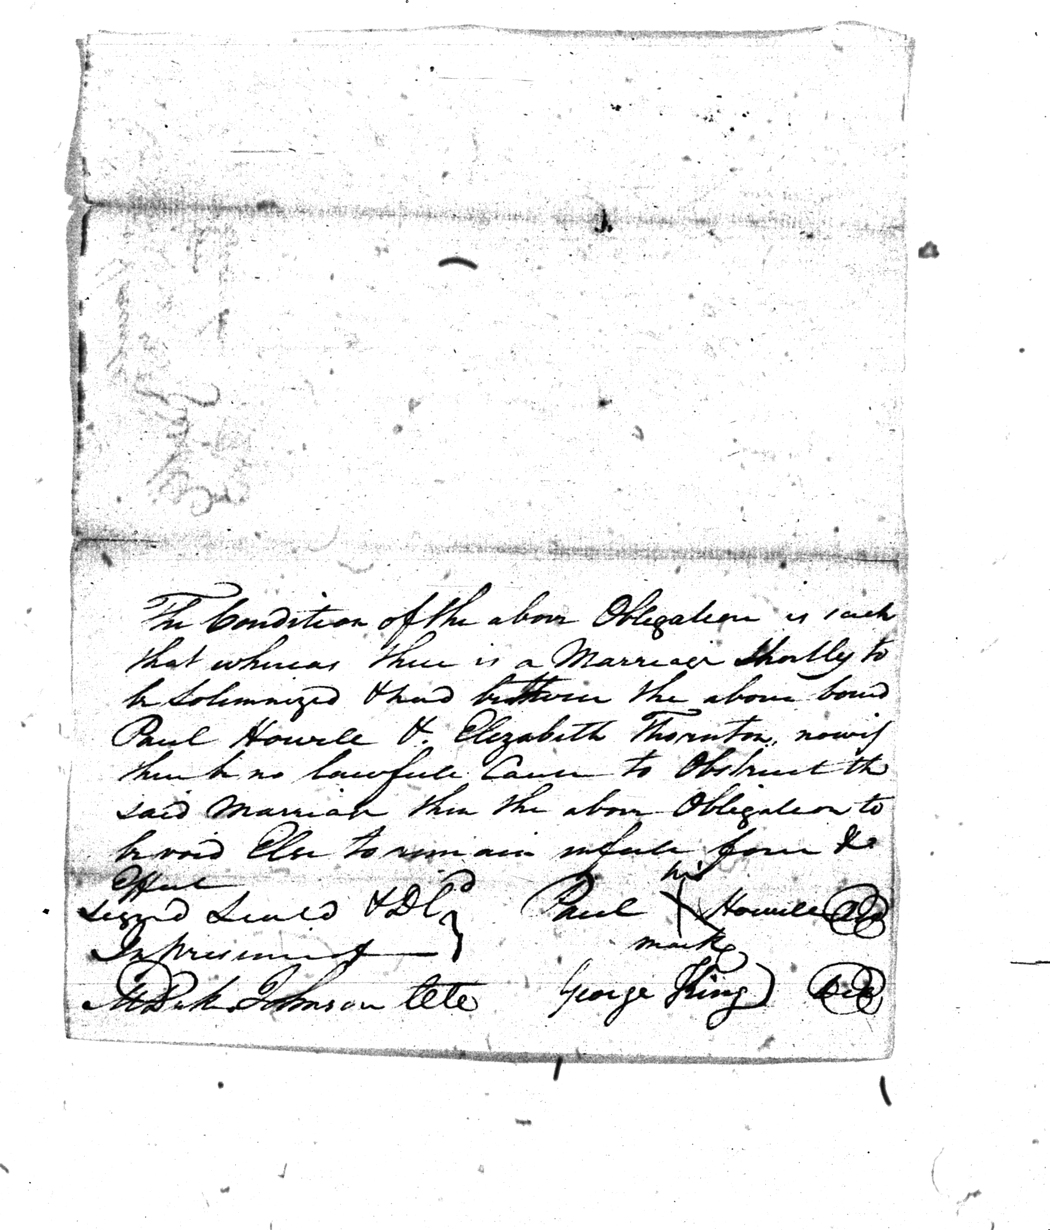 The Condition of the above Obligation is such
that whereas there is a Marriage Shortly to
be Solemnized & had between the above bound
Paul Howell & Elizabeth Thornton, now if
there be no lawfull Cause to Obstruct the
said Marriage then the above Obligation to
be void Else to remain in full force &
Effect
Signd Seald & Dld
In presents of
Paul his X mark Howell Seal
Johnson Clk
George King Seal